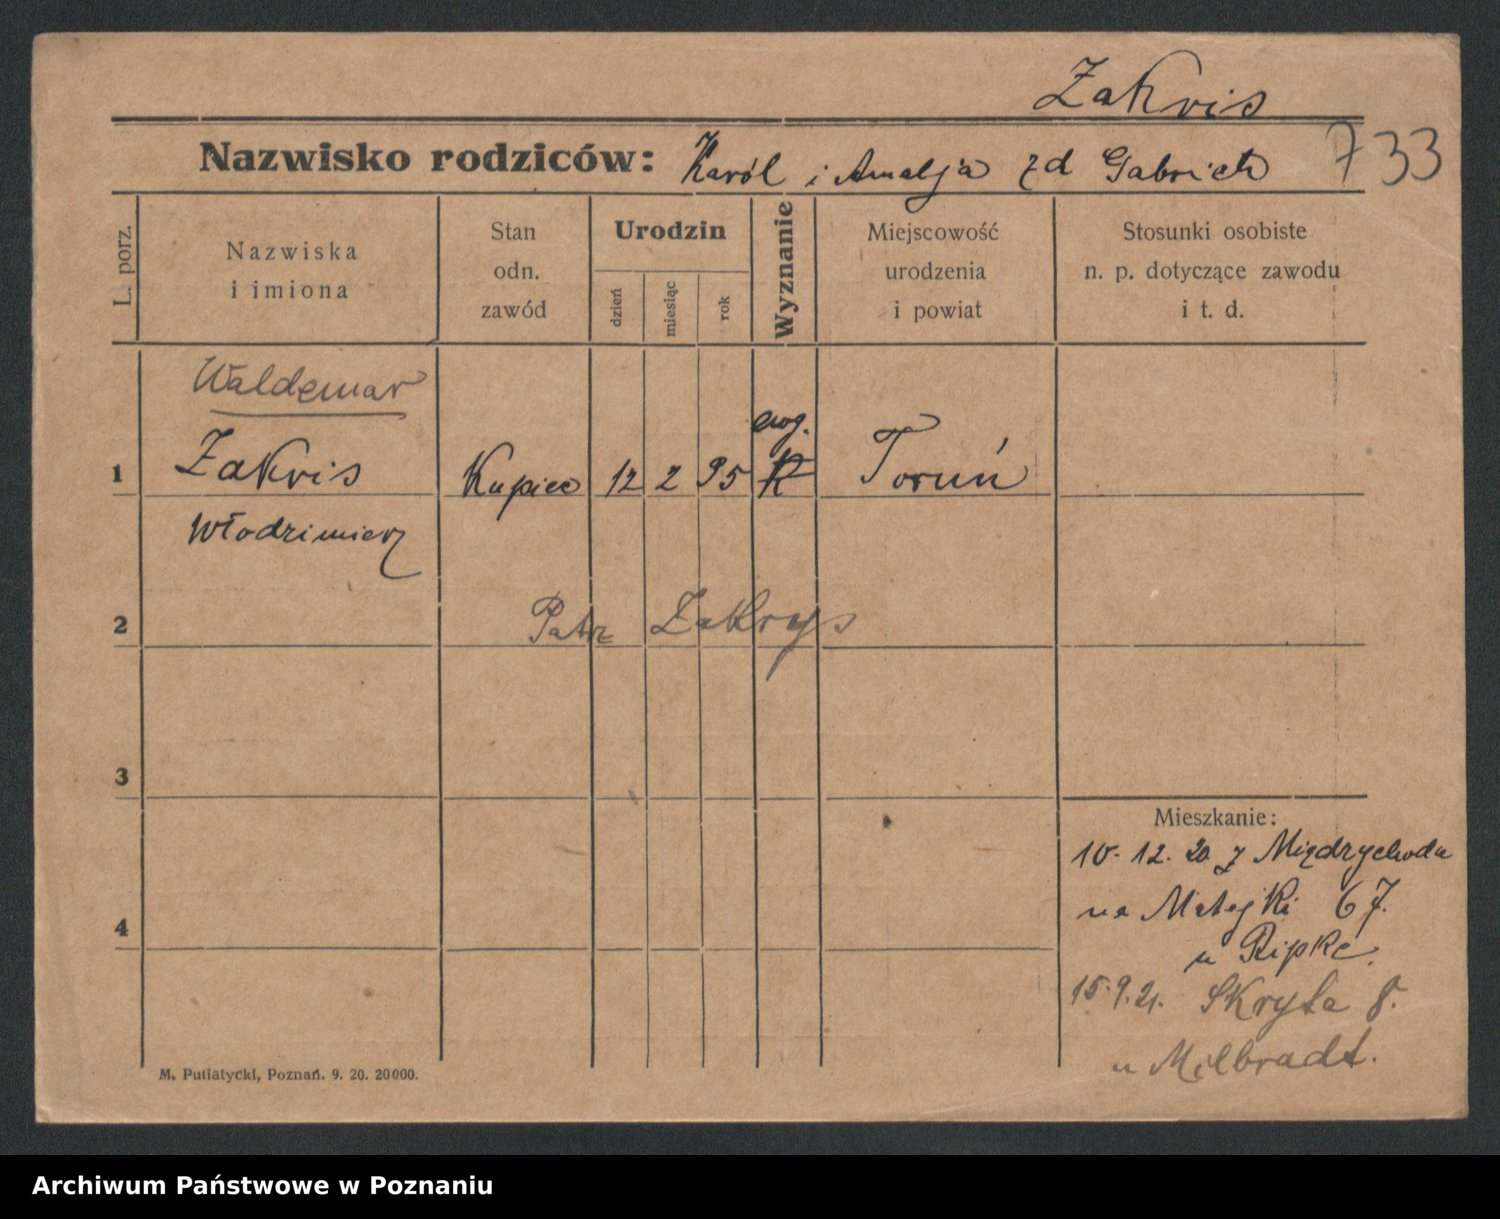 Zakris
Nazwisko rodziców: Karól i Amalja zd Gabrich 733
L. porz.
Nazwiska
i imiona
Stan
odn.
zawód
Urodzin
dzień
miesiąc
rok
Wyznanie
Miejscowość
urodzenia
i powiat
Stosunki osobiste
n. p. dotyczące zawodu
i t. d.
Waldemar
1 Zakris Kupiec 12 2 95 K Toruń
Włodzimierz
2 Patrz Zakrys
3
Mieszkanie:
10. 12. 20 z Międzychodu
4 na Matejki 67.
u Ripke.
15.9.21. Skryta 8.
u Milbradt.
M. Putiatycki, Poznań. 9. 20. 20000.
Archiwum Państwowe w Poznaniu